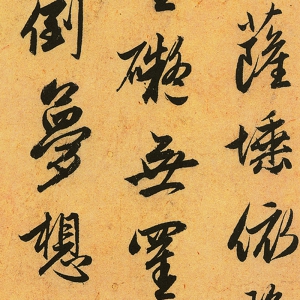 薩埵依
礙無罣
倒夢想